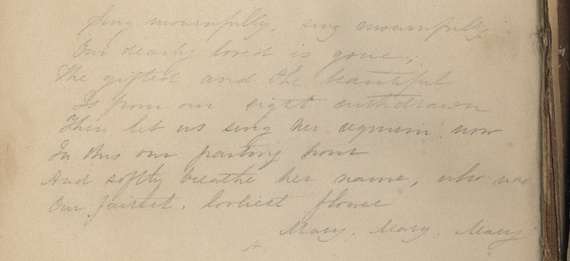 Sing mournfully, sing mournfully,
Our dearly loved is gone;
The gifted and the beautiful
Is from our sight withdrawn
Then let us sing her requiem now
In this our parting hour
And softly breathe her name, who was
Our fairest, loveliest flower
Mary, Mary, Mary